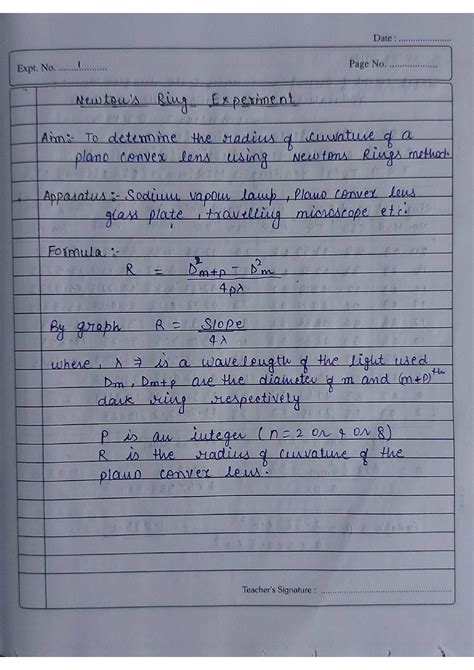 Date : ....................
Expt. No. ....1..........
Page No. ..................
Newton's Ring Experiment
Aim:- To determine the radius of curvature of a
plano convex lens using Newtons Rings method.
Apparatus :- Sodium vapour lamp, Plano convex lens
glass plate, travelling microscope etc.
Formula :-
R = D²m+p - D²m / 4pλ
By graph R = Slope / 4λ
where, λ ⇒ is a wavelength of the light used
Dm, Dm+p are the diameter of m and (m+p)th
dark ring respectively
P is an integer (n=2 or 4 or 8)
R is the radius of curvature of the
plano convex lens.
Teacher's Signature : ..............................